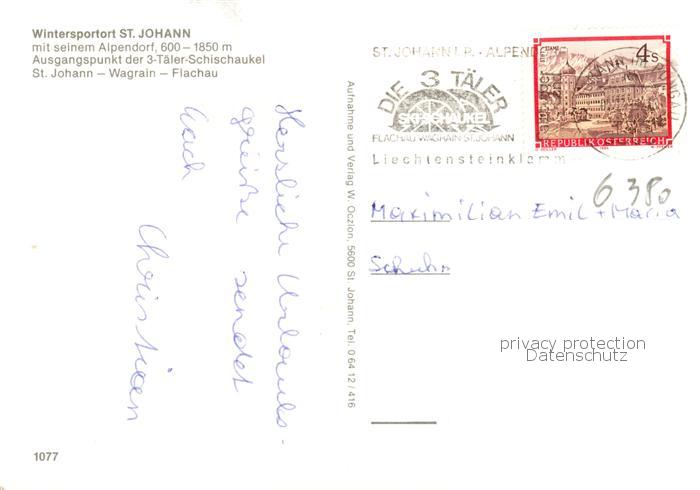 Wintersportort ST. JOHANN
mit seinem Alpendorf, 600 – 1850 m
Ausgangspunkt der 3-Täler-Schischaukel
St. Johann – Wagrain – Flachau
Herzliche Urlaubs-
grüße sendet
Euch
Christian
1077
Aufnahme und Verlag W. Oczlon, 5600 St. Johann, Tel. 0 64 12 / 416
ST. JOHANN I. P. - ALPENDORF
DIE 3 TÄLER
SKISCHAUKEL
FLACHAU WAGRAIN ST. JOHANN
Liechtensteinklamm
4 S
REPUBLIK ÖSTERREICH
6 380
Maximilian Emil + Maria
Schuhn
privacy protection
Datenschutz